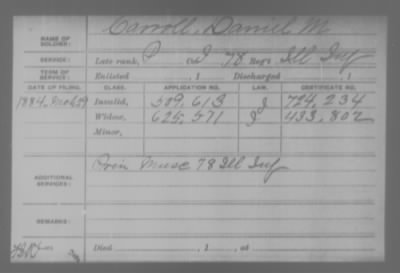 Carroll, Daniel M
NAME OF SOLDIER:
SERVICE: Late rank, P Co. I, 78 Reg't Ill Inf
TERM OF SERVICE: Enlisted , 1 Discharged , 1
DATE OF FILING. CLASS. APPLICATION NO. LAW. CERTIFICATE NO.
1884, Invalid, 509,613 J 724,234
Widow, 625,571 J 433,802
Minor,
ADDITIONAL SERVICES: Prin Musc 78 Ill Inf
REMARKS:
Died , 1 , at